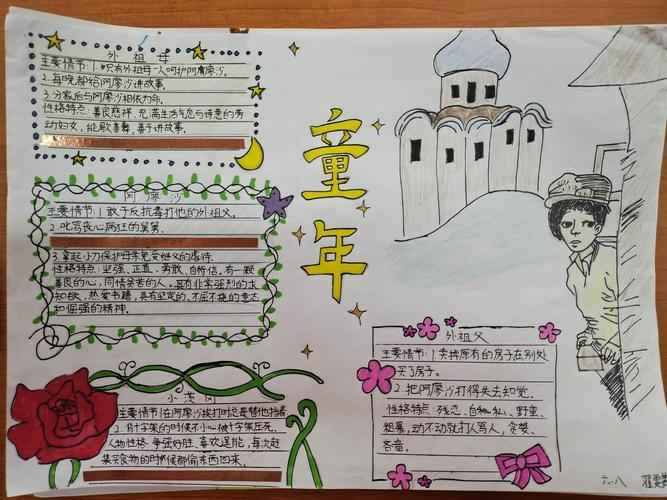 外祖母
主要情节:1.只有外祖母一人呵护阿廖沙。
2.每晚都给阿廖沙讲故事。
3.分家后与阿廖沙相依为命。
性格特点:善良慈祥、充满生活气息与诗意的劳
动妇女,能歌善舞,善于讲故事。
童年
阿廖沙
主要情节:1.敢于反抗毒打他的外祖父。
2.叱骂丧心病狂的舅舅。
3.拿起小刀保护母亲免受继父的虐待。
性格特点:坚强、正直、勇敢、自信,有一颗
善良的心,同情贫苦的人。具有非常强烈的求
知欲,热爱书籍,具有坚定的、不屈不挠的意志
和倔强的精神。
小茨冈
主要情节:1.在阿廖沙挨打时总是替他挡着
2.背十字架的时候不小心被十字架压死。
人物性格:争强好胜、喜欢逞能,每次赶
集买食物的时候都偷东西回来。
外祖父
主要情节:1.卖掉原有的房子在别处
买了房子。
2.把阿廖沙打得失去知觉。
性格特点:残忍、自私、野蛮、
粗暴,动不动就打人骂人,贪婪、
吝啬。
六.八